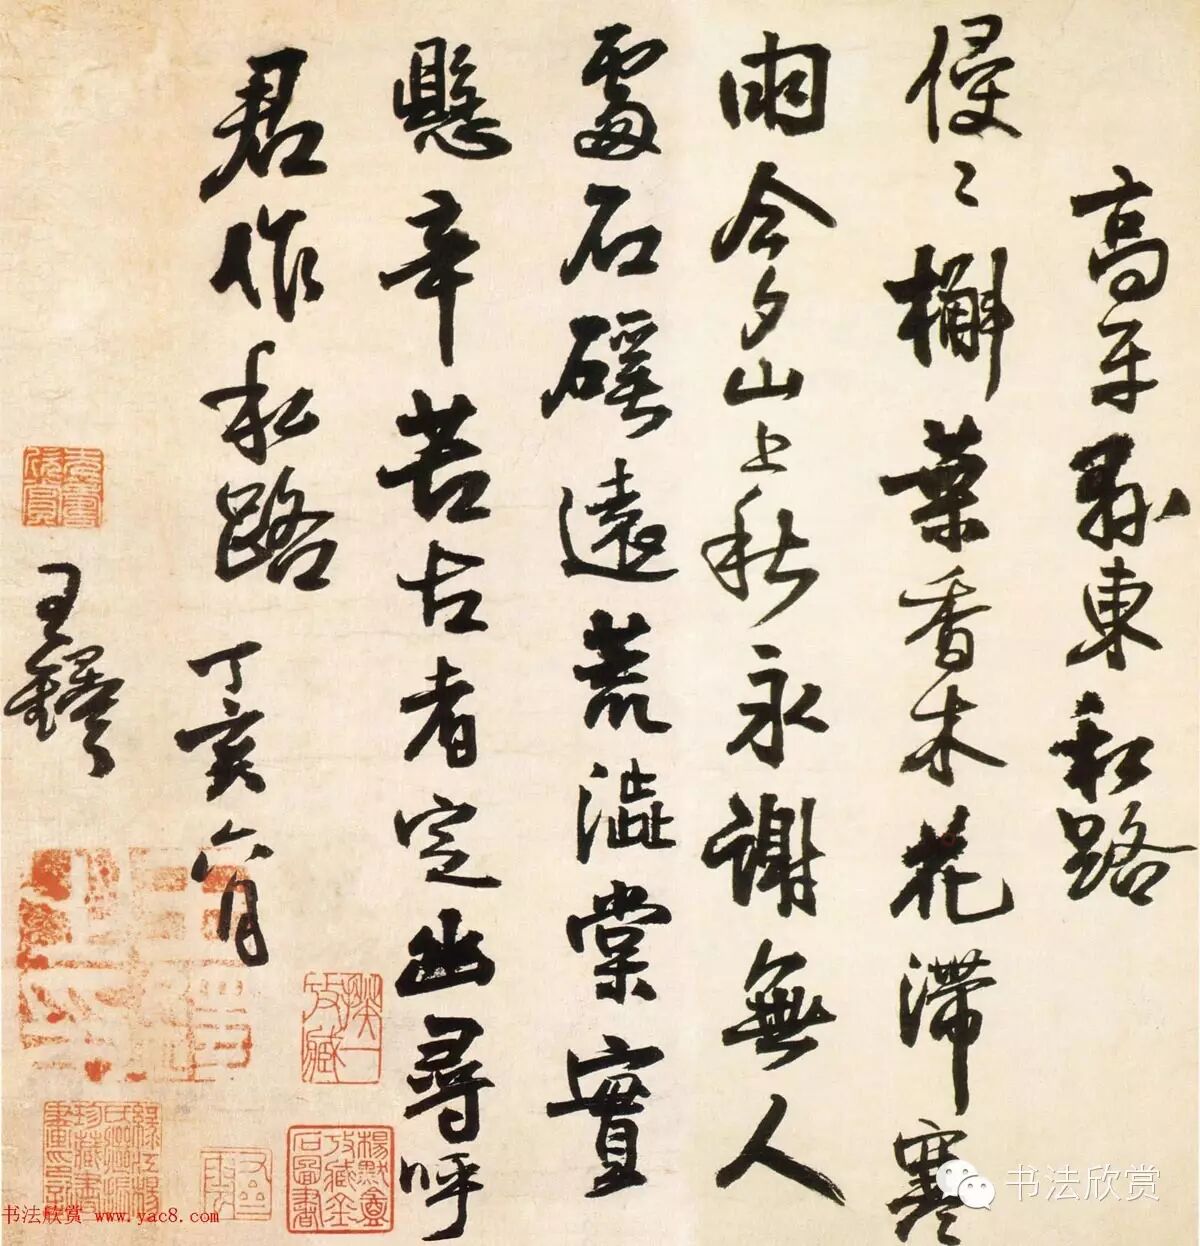 高平縣東私路
侵〻槲葉香木花滯寒
雨今夕山上秋永謝無人
處石磎遠荒澀棠實
懸辛苦古者定幽尋呼
君作私路 丁亥六月
王鐸
书法欣赏
书法欣赏 www.yac8.com